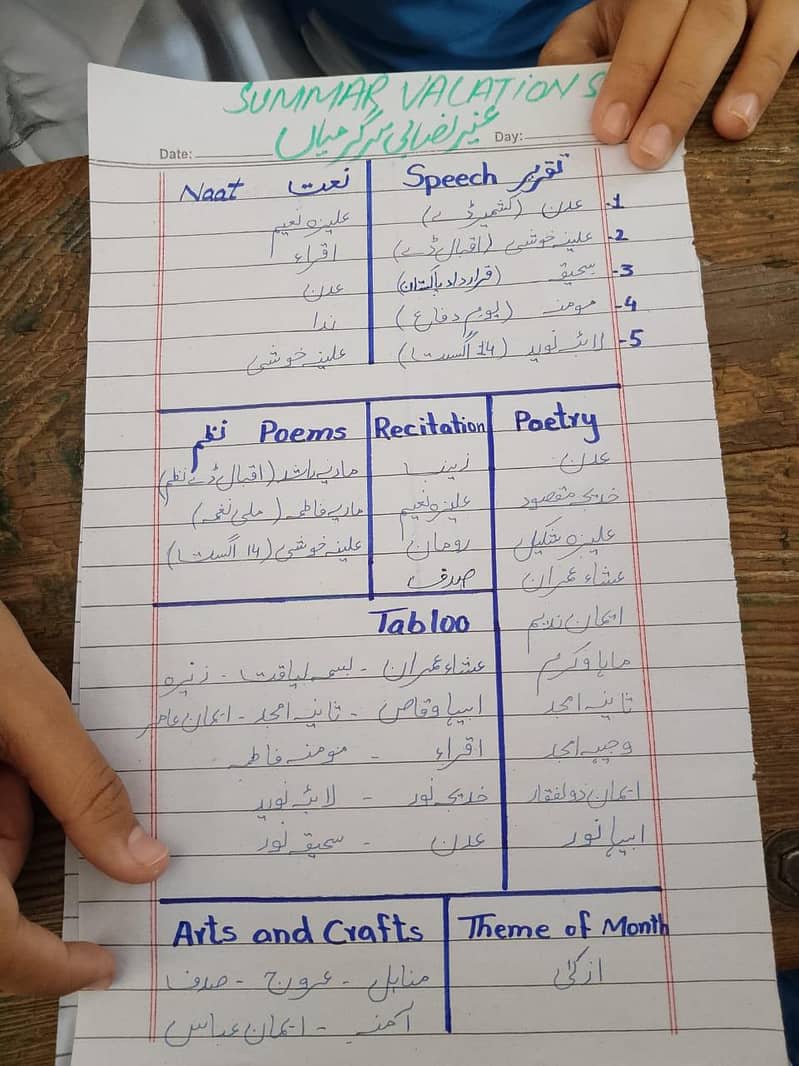 SUMMAR VACATIONS
غیر نصابی سرگرمیاں
Date:
Day:
Speech تقریر
1- عدن (کشمیر ڈے)
2- علینہ خوشی (اقبال ڈے)
3- سحیق (قرارداد پاکستان)
4- مومنہ (یوم دفاع)
5- لائبہ نوید (14 اگست)
Naat نعت
علیزہ نعیم
اقراء
عدن
ندا
علینہ خوشی
Poetry
عدن
خدیجہ مقصود
علیزہ شکیل
عشاء عمران
ایمان ندیم
ماہا وکرم
ثانیہ امجد
وجیہہ امجد
ایمان ذولفقار
ابیہا نور
Recitation
زینب
علیزہ نعیم
رومان
صدف
Poems نظم
ماریہ راشد (اقبال ڈے نظم)
ماریہ فاطمہ (ملی نغمہ)
علینہ خوشی (14 اگست)
Tabloo
عشاء عمران - بسمہ لیاقت - زنیرہ
ابیہا وقاص - ثانیہ امجد - ایمان عامر
اقراء - مومنہ فاطمہ
خدیجہ نور - لائبہ نوید
عدن - سحیق نور
Theme of Month
ازکیٰ
Arts and Crafts
مناہل - عروج - صدف
آمنہ - ایمان عباس